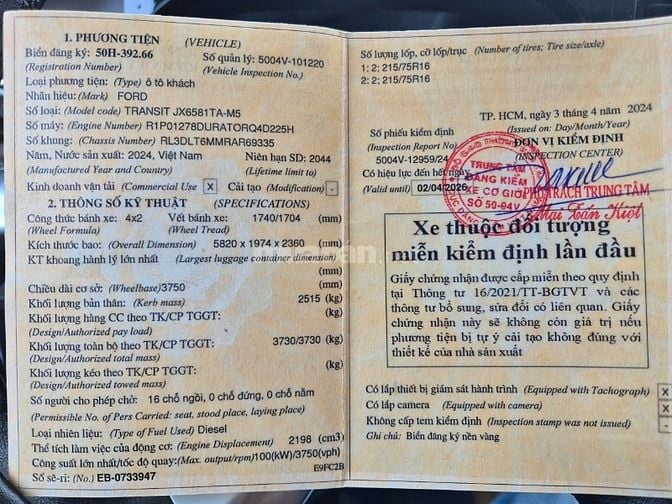 1. PHƯƠNG TIỆN (VEHICLE)
Biển đăng ký: 50H-392.66 Số quản lý: 5004V-101220
(Registration Number) (Vehicle Inspection No.)
Loại phương tiện: (Type) ô tô khách
Nhãn hiệu: (Mark) FORD
Số loại: (Model code) TRANSIT JX6581TA-M5
Số máy: (Engine Number) R1P01278DURATORQ4D225H
Số khung: (Chassis Number) RL3DLT6MMRAR69335
Năm, Nước sản xuất: 2024, Việt Nam Niên hạn SD: 2044
(Manufactured Year and Country) (Lifetime limit to)
Kinh doanh vận tải (Commercial Use) X Cải tạo (Modification) -
2. THÔNG SỐ KỸ THUẬT (SPECIFICATIONS)
Công thức bánh xe: 4x2 Vết bánh xe: 1740/1704 (mm)
(Wheel Formula) (Wheel Tread)
Kích thước bao: (Overall Dimension) 5820 x 1974 x 2360 (mm)
KT khoang hành lý lớn nhất (Largest luggage container dimension)
(mm)
Chiều dài cơ sở: (Wheelbase) 3750 (mm)
Khối lượng bản thân: (Kerb mass) 2515 (kg)
Khối lượng hàng CC theo TK/CP TGGT: (kg)
(Design/Authorized pay load)
Khối lượng toàn bộ theo TK/CP TGGT: 3730/3730 (kg)
(Design/Authorized total mass)
Khối lượng kéo theo TK/CP TGGT: (kg)
(Design/Authorized towed mass)
Số người cho phép chở: 16 chỗ ngồi, 0 chỗ đứng, 0 chỗ nằm
(Permissible No. of Pers Carried: seat, stood place, laying place)
Loại nhiên liệu: (Type of Fuel Used) Diesel
Thể tích làm việc của động cơ: (Engine Displacement) 2198 (cm3)
Công suất lớn nhất/tốc độ quay: (Max. output/rpm) 100(kW)/3750(vph)
E9FC2B
Số sê-ri: (No.) EB-0733947
Số lượng lốp, cỡ lốp/trục (Number of tires; Tire size/axle)
1: 2; 215/75R16
2: 2; 215/75R16
TP. HCM, ngày 3 tháng 4 năm 2024
(Issued on: Day/Month/Year)
Số phiếu kiểm định ĐƠN VỊ KIỂM ĐỊNH
(Inspection Report No) (INSPECTION CENTER)
5004V-12959/24
Có hiệu lực đến hết ngày
(Valid until) 02/04/2026
TRUNG TÂM
ĐĂNG KIỂM
XE CƠ GIỚI
SỐ 50-04V
PHỤ TRÁCH TRUNG TÂM
Mai Tấn Kiệt
Xe thuộc đối tượng
miễn kiểm định lần đầu
Giấy chứng nhận được cấp miễn theo quy định
tại Thông tư 16/2021/TT-BGTVT và các
thông tư bổ sung, sửa đổi có liên quan. Giấy
chứng nhận này sẽ không còn giá trị nếu
phương tiện bị tự ý cải tạo không đúng với
thiết kế của nhà sản xuất
Có lắp thiết bị giám sát hành trình (Equipped with Tachograph) X
Có lắp camera (Equipped with camera) X
Không cấp tem kiểm định (Inspection stamp was not issued) -
Ghi chú: Biển đăng ký nền vàng